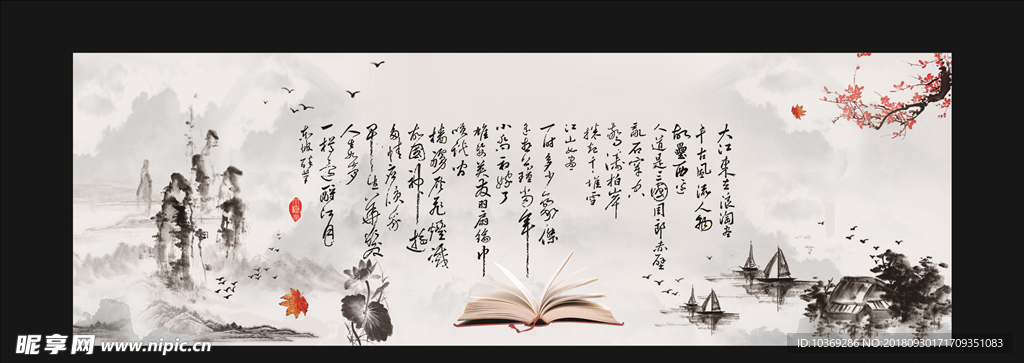 大江東去浪淘尽
千古風流人物
故壘西边
人道是三國周郎赤壁
乱石穿空
惊涛拍岸
捲起千堆雪
江山如画
一时多少豪傑
遥想公瑾当年
小乔初嫁了
雄姿英发羽扇纶巾
谈笑间
樯橹灰飛煙滅
故國神遊
多情应笑我
早生華发
人生如梦
一樽还酹江月
东坡
昵享网 www.nipic.cn
ID:10369286 NO:20180930171709351083